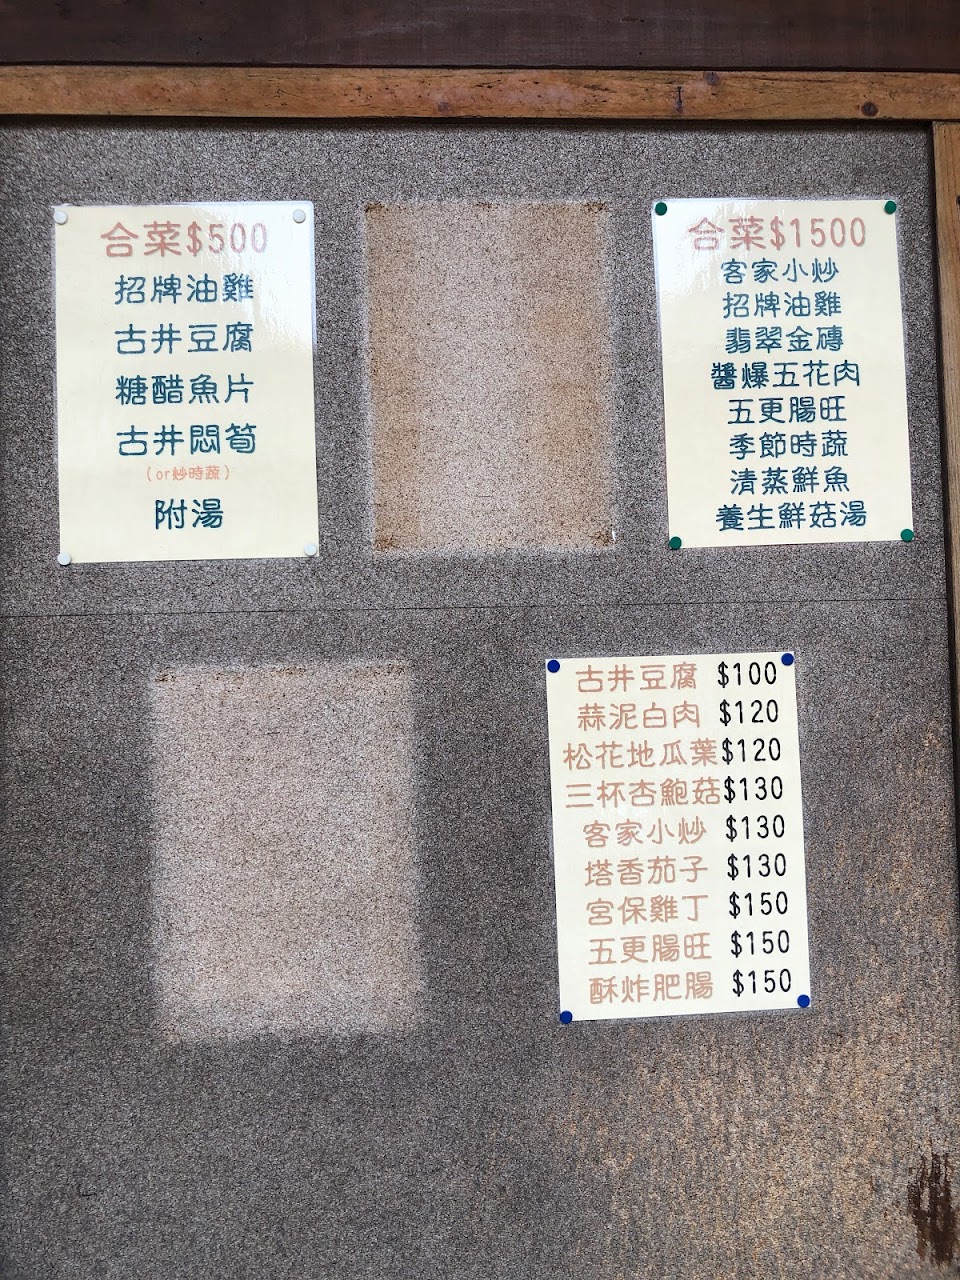 合菜$500
招牌油雞
古井豆腐
糖醋魚片
古井悶筍
(or炒時蔬)
附湯
合菜$1500
客家小炒
招牌油雞
翡翠金磚
醬爆五花肉
五更腸旺
季節時蔬
清蒸鮮魚
養生鮮菇湯
古井豆腐 $100
蒜泥白肉 $120
松花地瓜葉$120
三杯杏鮑菇$130
客家小炒 $130
塔香茄子 $130
宮保雞丁 $150
五更腸旺 $150
酥炸肥腸 $150